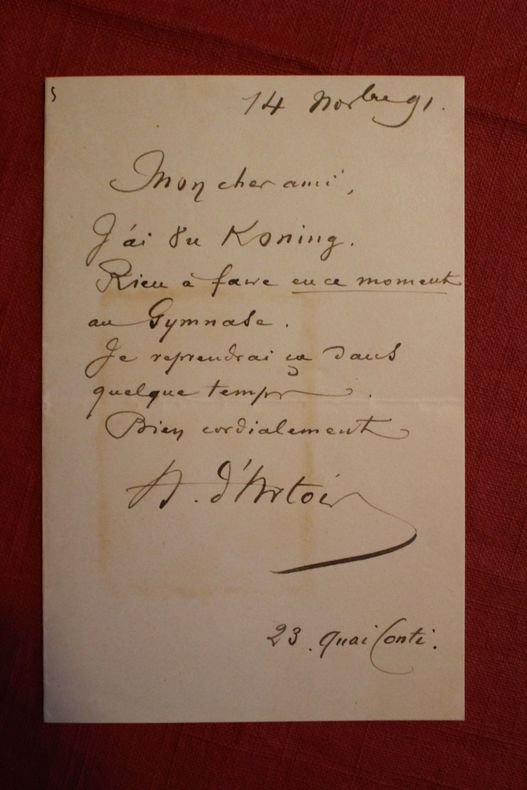 14 Novbre 91.
Mon cher ami,
J'ai vu Koning.
Rien à faire en ce moment
au Gymnase.
Je reprendrai ça dans
quelque temps.
Bien cordialement
A. d'Artois
23. quai Conti.